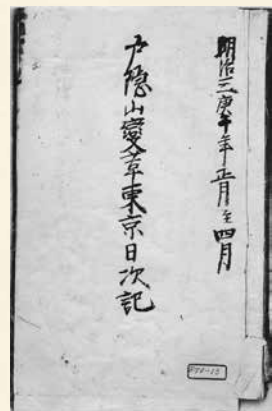 明治三庚午年正月至四月
戸隠山變革東京日次記